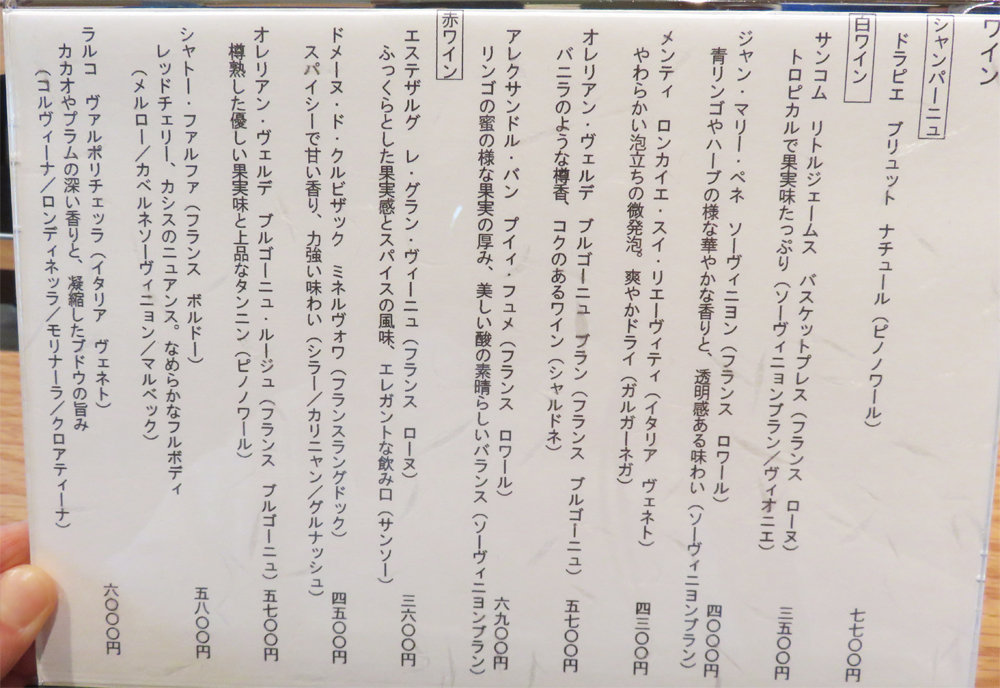 ワイン
シャンパーニュ
ドラピエ　ブリュット　ナチュール（ピノノワール）　七七〇〇円
白ワイン
サンコム　リトルジェームス　バスケットプレス（フランス　ローヌ）
トロピカルで果実味たっぷり（ソーヴィニヨンブラン／ヴィオニエ）　三五〇〇円
ジャン・マリー・ペネ　ソーヴィニヨン（フランス　ロワール）
青リンゴやハーブの様な華やかな香りと、透明感ある味わい（ソーヴィニヨンブラン）　四〇〇〇円
メンティ　ロンカイエ・スイ・リエーヴィティ（イタリア　ヴェネト）
やわらかい泡立ちの微発泡。爽やかドライ（ガルガーネガ）　四三〇〇円
オレリアン・ヴェルデ　ブルゴーニュ　ブラン（フランス　ブルゴーニュ）
バニラのような樽香、コクのあるワイン（シャルドネ）　五七〇〇円
アレクサンドル・バン　プイィ・フュメ（フランス　ロワール）
リンゴの蜜の様な果実の厚み、美しい酸の素晴らしいバランス（ソーヴィニヨンブラン）　六九〇〇円
赤ワイン
エステザルグ　レ・グラン・ヴィーニュ（フランス　ローヌ）
ふっくらとした果実感とスパイスの風味、エレガントな飲み口（サンソー）　三六〇〇円
ドメーヌ・ド・クルビザック　ミネルヴォワ（フランスラングドック）
スパイシーで甘い香り、力強い味わい（シラー／カリニャン／グルナッシュ）　四五〇〇円
オレリアン・ヴェルデ　ブルゴーニュ・ルージュ（フランス　ブルゴーニュ）　五七〇〇円
樽熟した優しい果実味と上品なタンニン（ピノノワール）
シャトー・ファルファ（フランス　ボルドー）
レッドチェリー、カシスのニュアンス。なめらかなフルボディ
（メルロー／カベルネソーヴィニヨン／マルベック）　五八〇〇円
ラルコ　ヴァルポリチェッラ（イタリア　ヴェネト）
カカオやプラムの深い香りと、凝縮したブドウの旨み
（コルヴィーナ／ロンディネッラ／モリナーラ／クロアティーナ）　六〇〇〇円